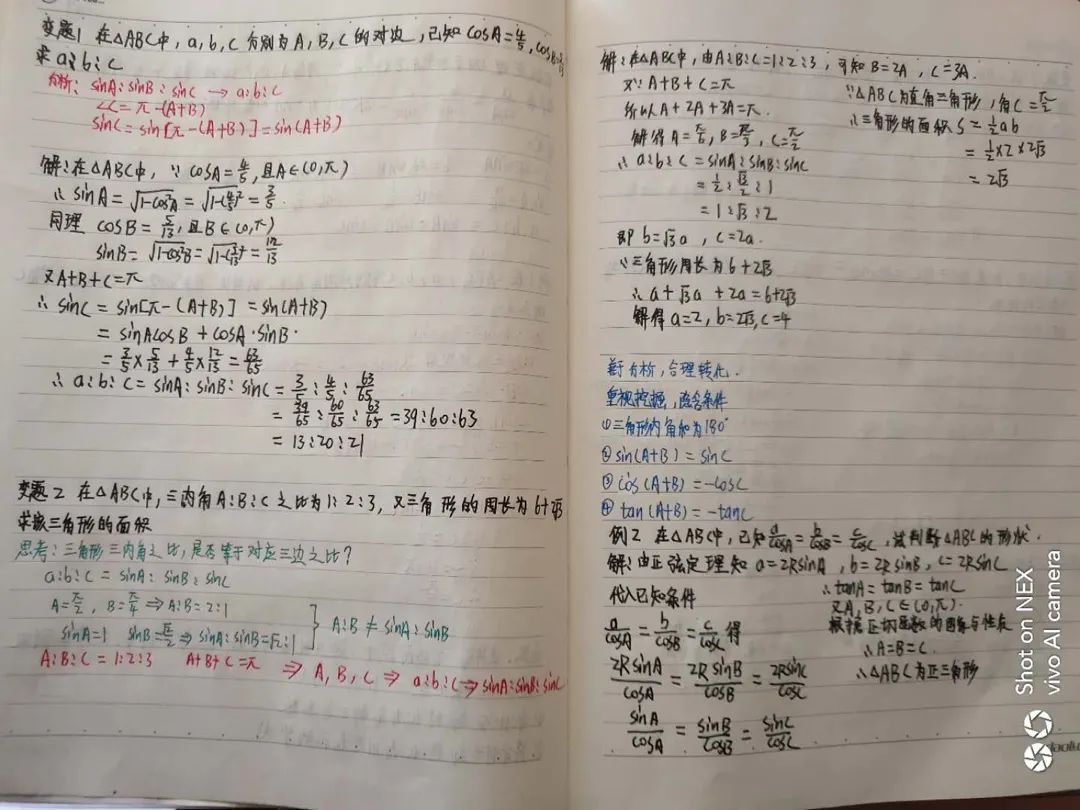 变题1 在△ABC中，a,b,c分别为A,B,C的对边，已知cosA=4/5，cosB=5/13
求a:b:c
分析：sinA:sinB:sinC → a:b:c
∠C=π-(A+B)
sinC=sin[π-(A+B)]=sin(A+B)
解：在△ABC中，∵cosA=4/5，且A∈(0,π)
∴sinA=√(1-cos²A)=√(1-(4/5)²)=3/5.
同理 cosB=5/13，且B∈(0,π)
sinB=√(1-cos²B)=√(1-(5/13)²)=12/13
又A+B+C=π
∴sinC=sin[π-(A+B)]=sin(A+B)
=sinAcosB+cosA·sinB.
=3/5×5/13+4/5×12/13=63/65
∴a:b:c=sinA:sinB:sinC=3/5:4/5:63/65
=39/65:60/65:63/65=39:60:63
=13:20:21
变题2 在△ABC中，三内角A:B:C之比为1:2:3，又三角形的周长为6+2√3
求三角形的面积
思考：三角形三内角之比，是否等于对应三边之比？
a:b:c=sinA:sinB:sinC
A=π/2，B=π/4⇒A:B=2:1
sinA=1 sinB=√2/2⇒sinA:sinB=√2:1
A:B≠sinA:sinB
A:B:C=1:2:3 A+B+C=π ⇒A,B,C⇒a:b:c⇒sinA:sinB:sinC
解：在△ABC中，由A:B:C=1:2:3，可知B=2A，C=3A.
又∵A+B+C=π
所以A+2A+3A=π.
解得A=π/6，B=π/3，C=π/2
∴a:b:c=sinA:sinB:sinC
=1/2:√3/2:1
=1:√3:2
即b=√3a，c=2a.
∵三角形周长为6+2√3
∴a+√3a+2a=6+2√3
解得a=2，b=2√3，c=4
∵△ABC为直角三角形，角C=π/2
∴三角形的面积S=1/2ab
=1/2×2×2√3
=2√3
善于分析，合理转化.
重视挖掘，隐含条件
①三角形内角和为180°
②sin(A+B)=sinC
③cos(A+B)=-cosC
④tan(A+B)=-tanC
例2 在△ABC中，已知a/cosA=b/cosB=c/cosC，试判断△ABC的形状.
解：由正弦定理知a=2RsinA，b=2RsinB，c=2RsinC
代入已知条件
a/cosA=b/cosB=c/cosC得
2RsinA/cosA=2RsinB/cosB=2RsinC/cosC
sinA/cosA=sinB/cosB=sinC/cosC
∴tanA=tanB=tanC
又A,B,C∈(0,π).
根据正切函数的图象与性质
∴A=B=C.
∴△ABC为正三角形
Shot on NEX
vivo AI camera